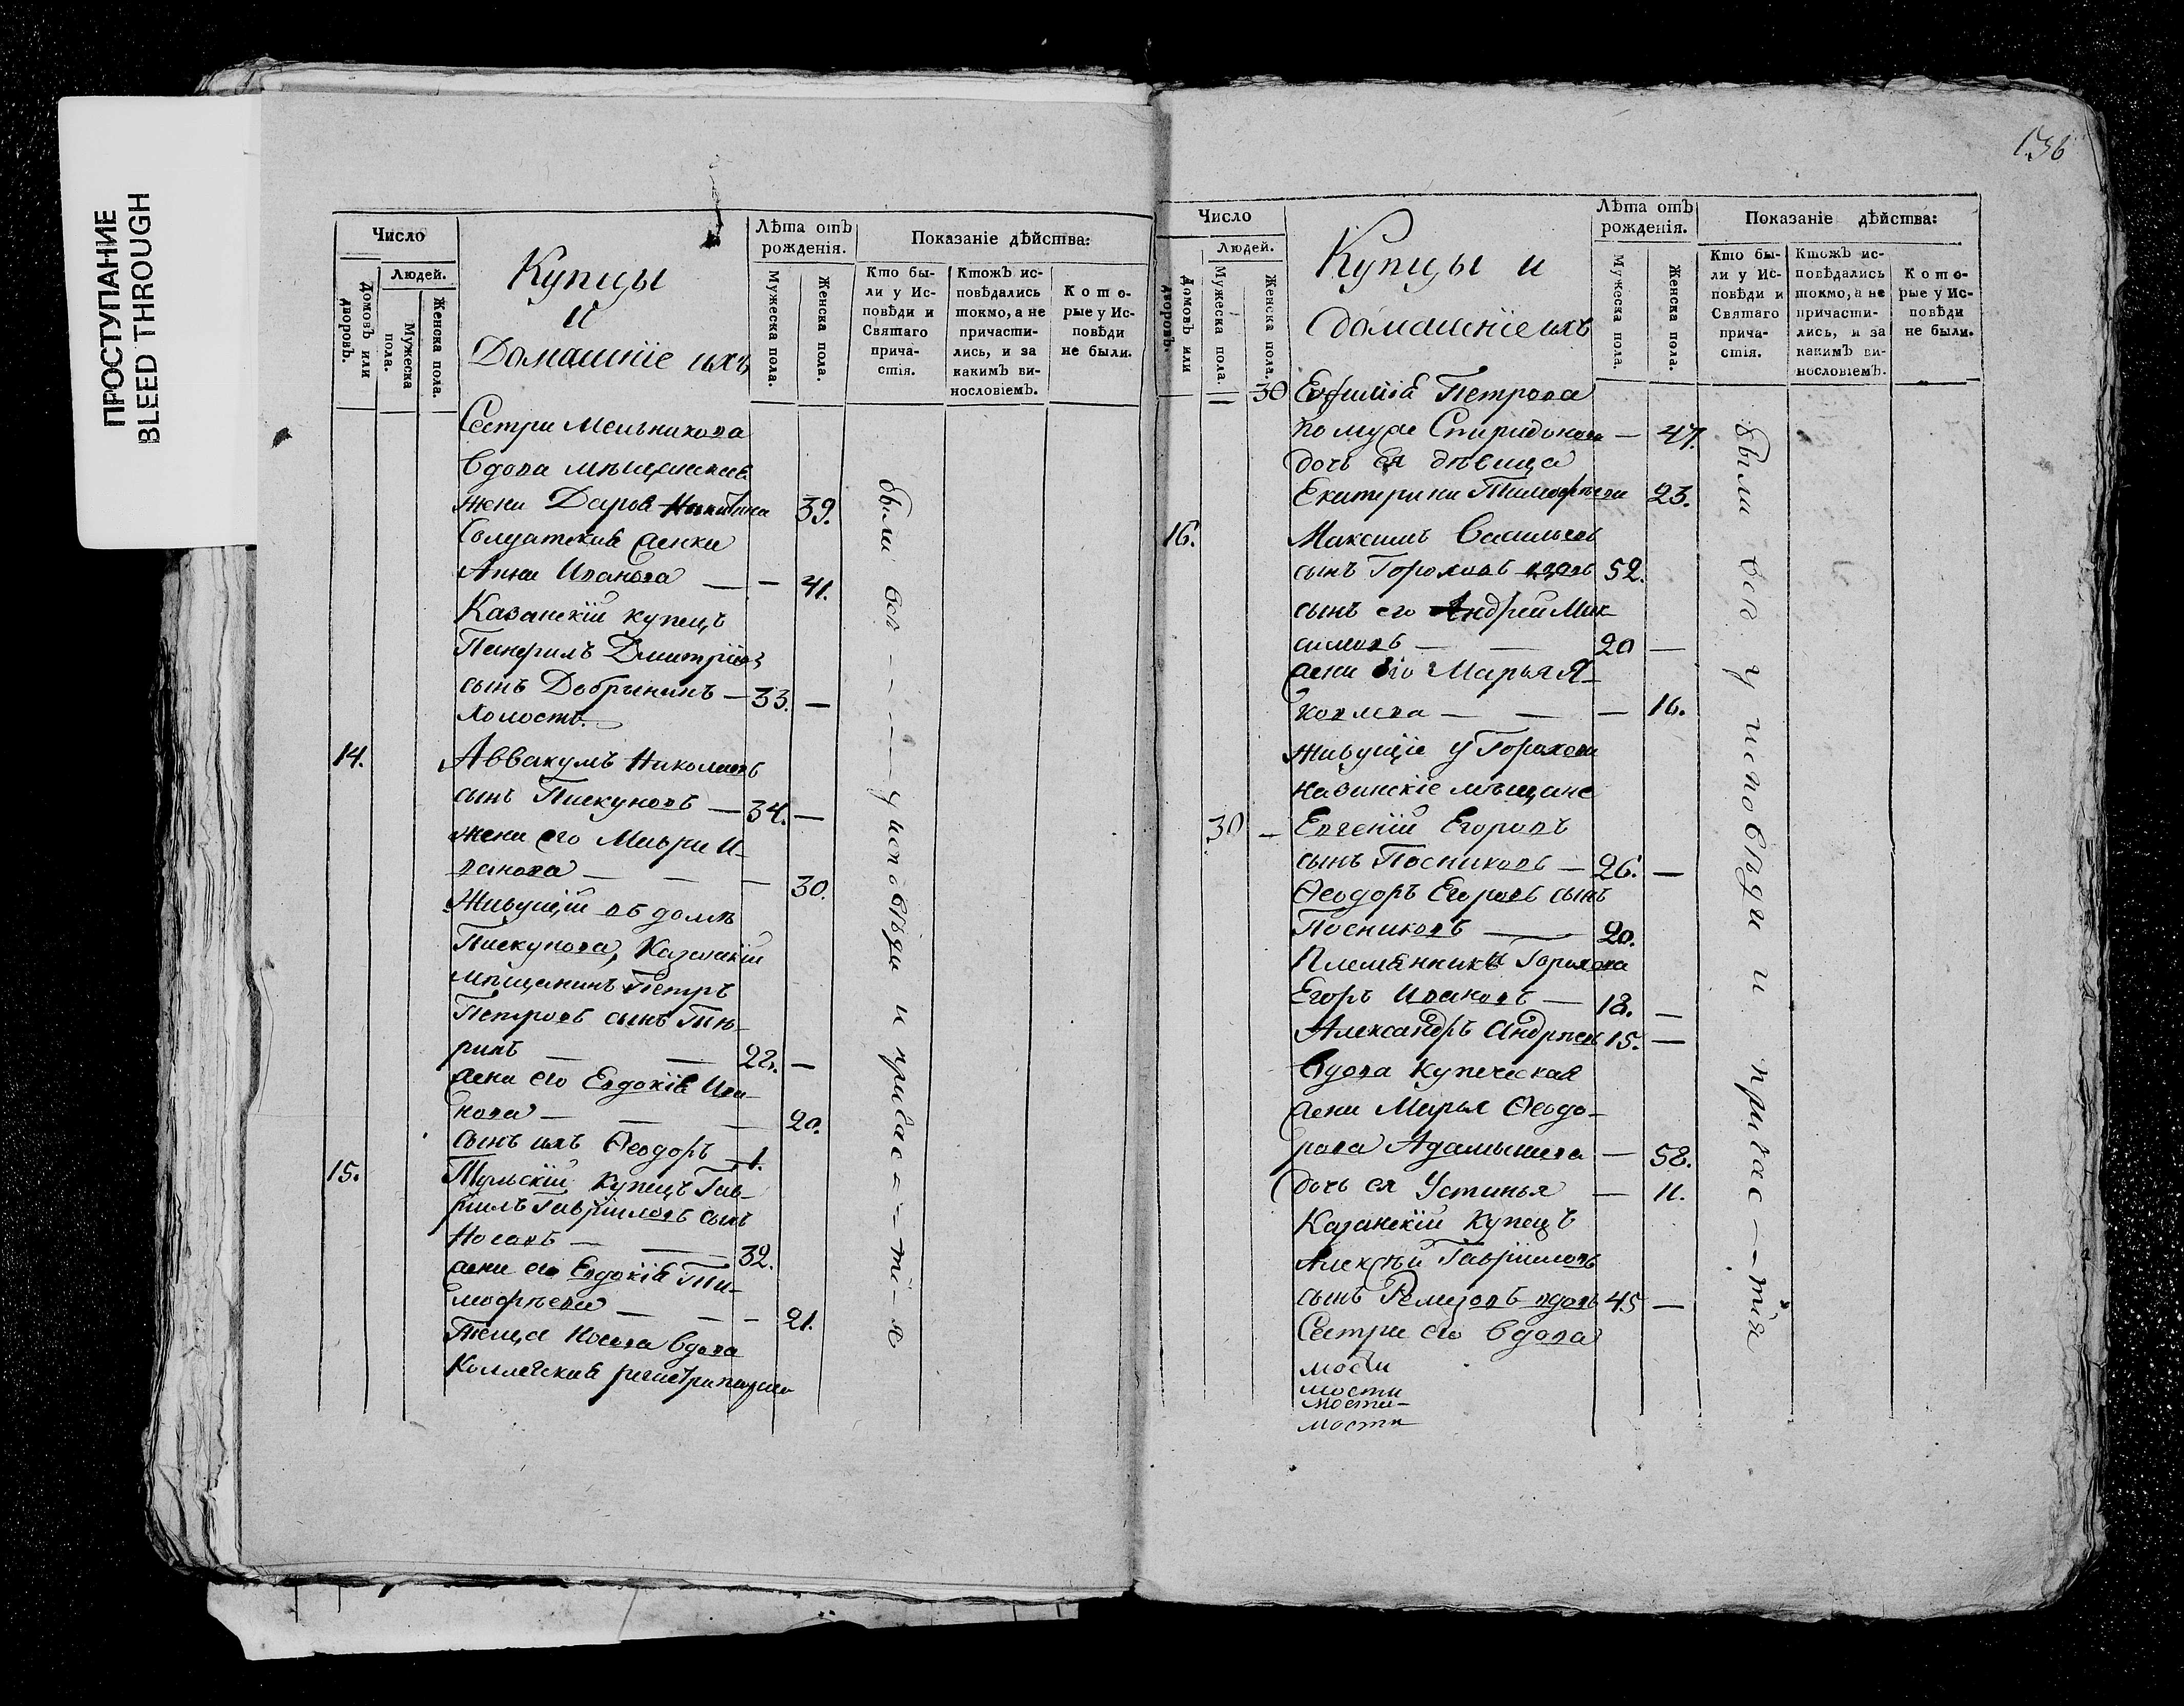 ПРОСТУПАНИЕ
BLEED THROUGH
Число
Людей.
Домовъ или дворовъ.
Мужеска пола.
Женска пола.
Купцы
и
Домашніе ихъ
Лѣта отъ рожденія.
Мужеска пола.
Женска пола.
Показаніе дѣйства:
Кто были у Исповѣди и Святаго причастія.
Ктожъ исповѣдались токмо, а не причастились, и за какимъ винословіемъ.
Которые у Исповѣди не были.
Сестра Мельникова
вдова мѣщанская
жена Дарья Никитина 39.
Солдатская женка
Анна Иванова — — 41.
Казанскій купецъ
Панфилъ Дмитріевъ
сынъ Добрынинъ — 33. —
холостъ.
14. Аввакумъ Николаевъ
сынъ Пискуновъ — 34. —
жена его Мавра И-
ванова — — — 30.
Живущій въ домѣ
Пискунова, Казанскій
мѣщанинъ Петръ
Петровъ сынъ Тю-
ринъ — — 22. —
жена его Евдокія Ива-
нова — — — 20.
сынъ ихъ Ѳеодоръ — 1.
15. Тульскій купецъ Гав-
рилъ Гавриловъ сынъ
Носовъ — — 32.
жена его Евдокія Ти-
мофѣева — — — 21.
Теща Носова вдова
Коллежская регистраторша
были всѣ — — — — у исповѣди и причас — — тія
136
Число
Людей.
Домовъ или дворовъ.
Мужеска пола.
Женска пола.
Купцы и
домашніе ихъ
Лѣта отъ рожденія.
Мужеска пола.
Женска пола.
Показаніе дѣйства:
Кто были у Исповѣди и Святаго причастія.
Ктожъ исповѣдались токмо, а не причастились, и за какимъ винословіемъ.
Которые у Исповѣди не были.
— = 30 Евфимія Петрова
по мужѣ Спиридонова — 47.
дочь ея дѣвица
Екатерина Тимофѣева 23.
16. Максимъ Васильевъ
сынъ Гороховъ вдовъ 52.
сынъ его Андрей Мак-
симовъ — — 20 —
жена его Марья Я-
ковлева — — — 16.
живущіе у Горохова
казанскіе мѣщане
30. — Евгеній Егоровъ
сынъ Посниковъ — 26. —
Ѳеодоръ Егоровъ сынъ
Посниковъ — 20.
Племянники Горохова
Егоръ Ивановъ — 18. —
Александръ Андреевъ 15. —
Вдова Купеческая
жена Марья Ѳеодо-
рова Адамычева — 58.
дочь ея Устинья — 11.
Казанскій Купецъ
Алексѣй Гавриловъ
сынъ Ремизовъ вдовъ 45 —
Сестра его вдова
мости
мости
мости-
мости
были всѣ у исповѣди и причас — — тія